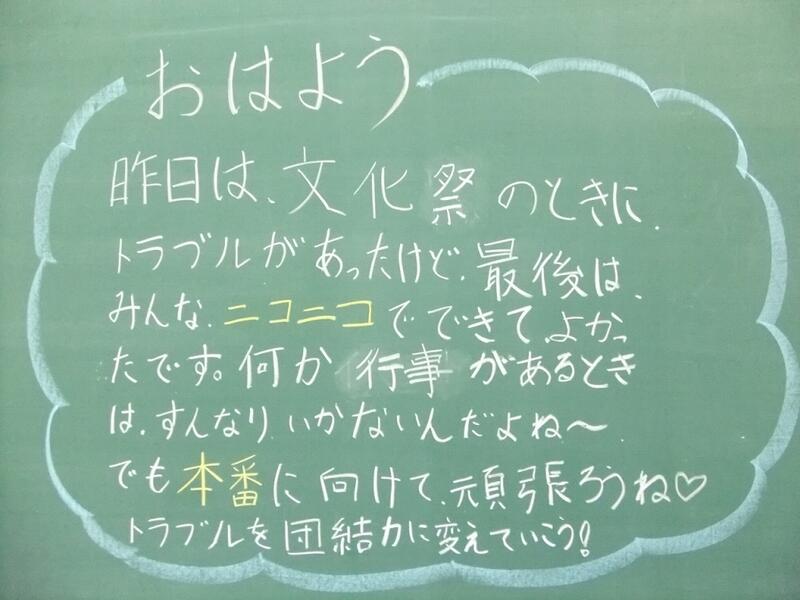 おはよう
昨日は、文化祭のときに、
トラブルがあったけど、最後は、
みんな、ニコニコでできて、よかっ
たです。何か行事があるとき
は、すんなり、いかないんだよね〜
でも本番に向けて、頑張ろうね♡
トラブルを団結力に変えていこう!